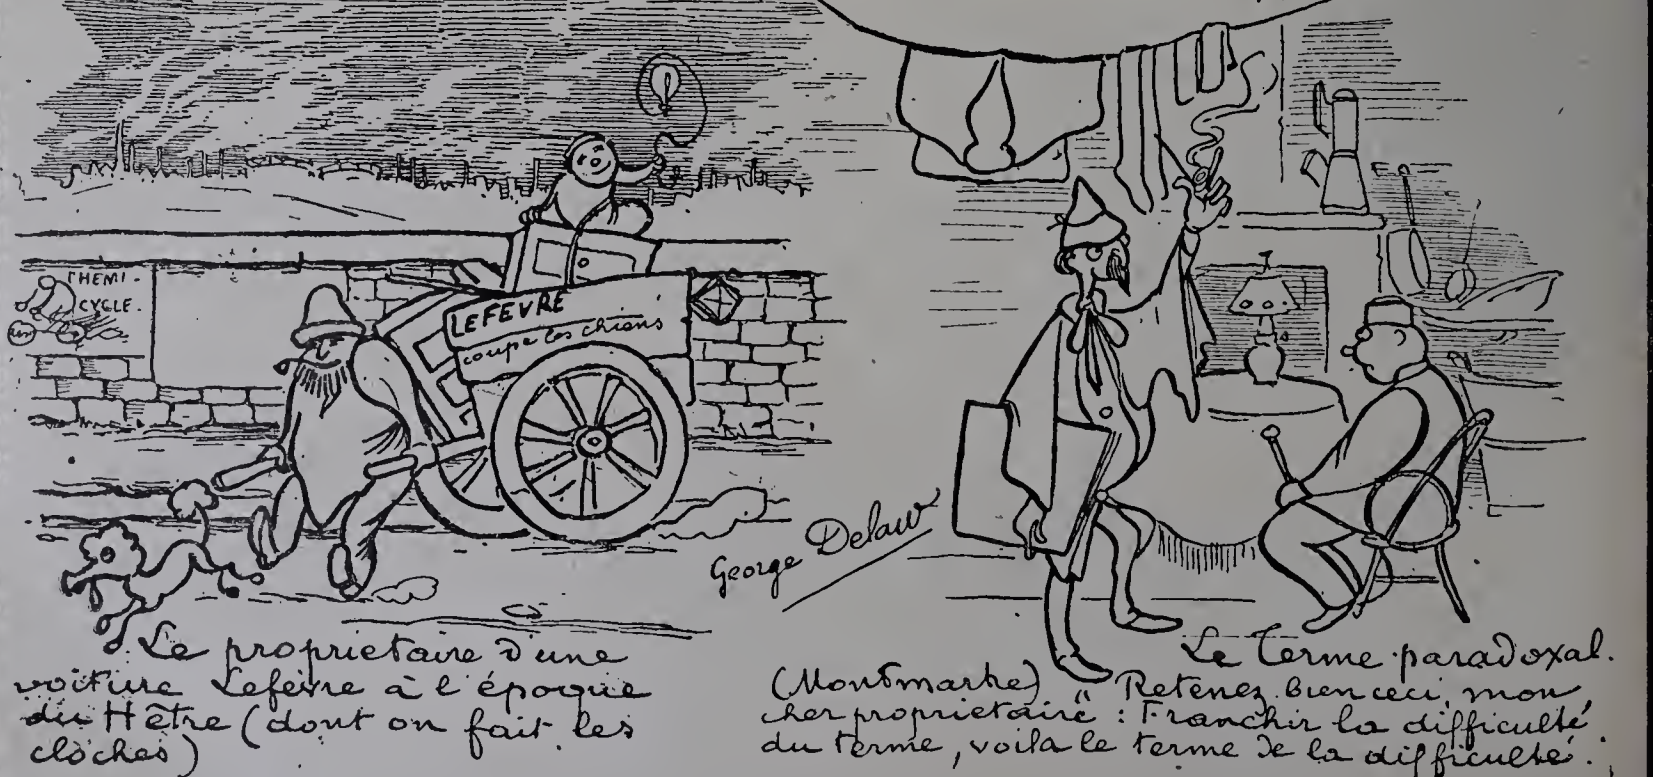 L'HEMI-
CYCLE.
LEFEVRE
coupe les chiens
George Delaw
Le proprietaire d'une
voiture Lefèvre à l'époque
du Hêtre (dont on fait les
cloches)
Le Terme paradoxal.
(Montmartre) "Retenez bien ceci, mon
cher proprietaire : Franchir la difficulté
du terme, voila le terme de la difficulté.